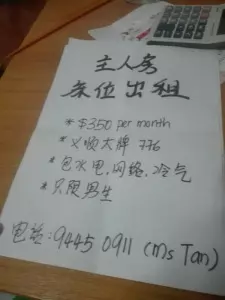 主人房
床位出租
* $350 per month
* 义顺大牌 776
* 包水电,网络,冷气
* 只限男生
电话:9445 0911 (Ms Tan)